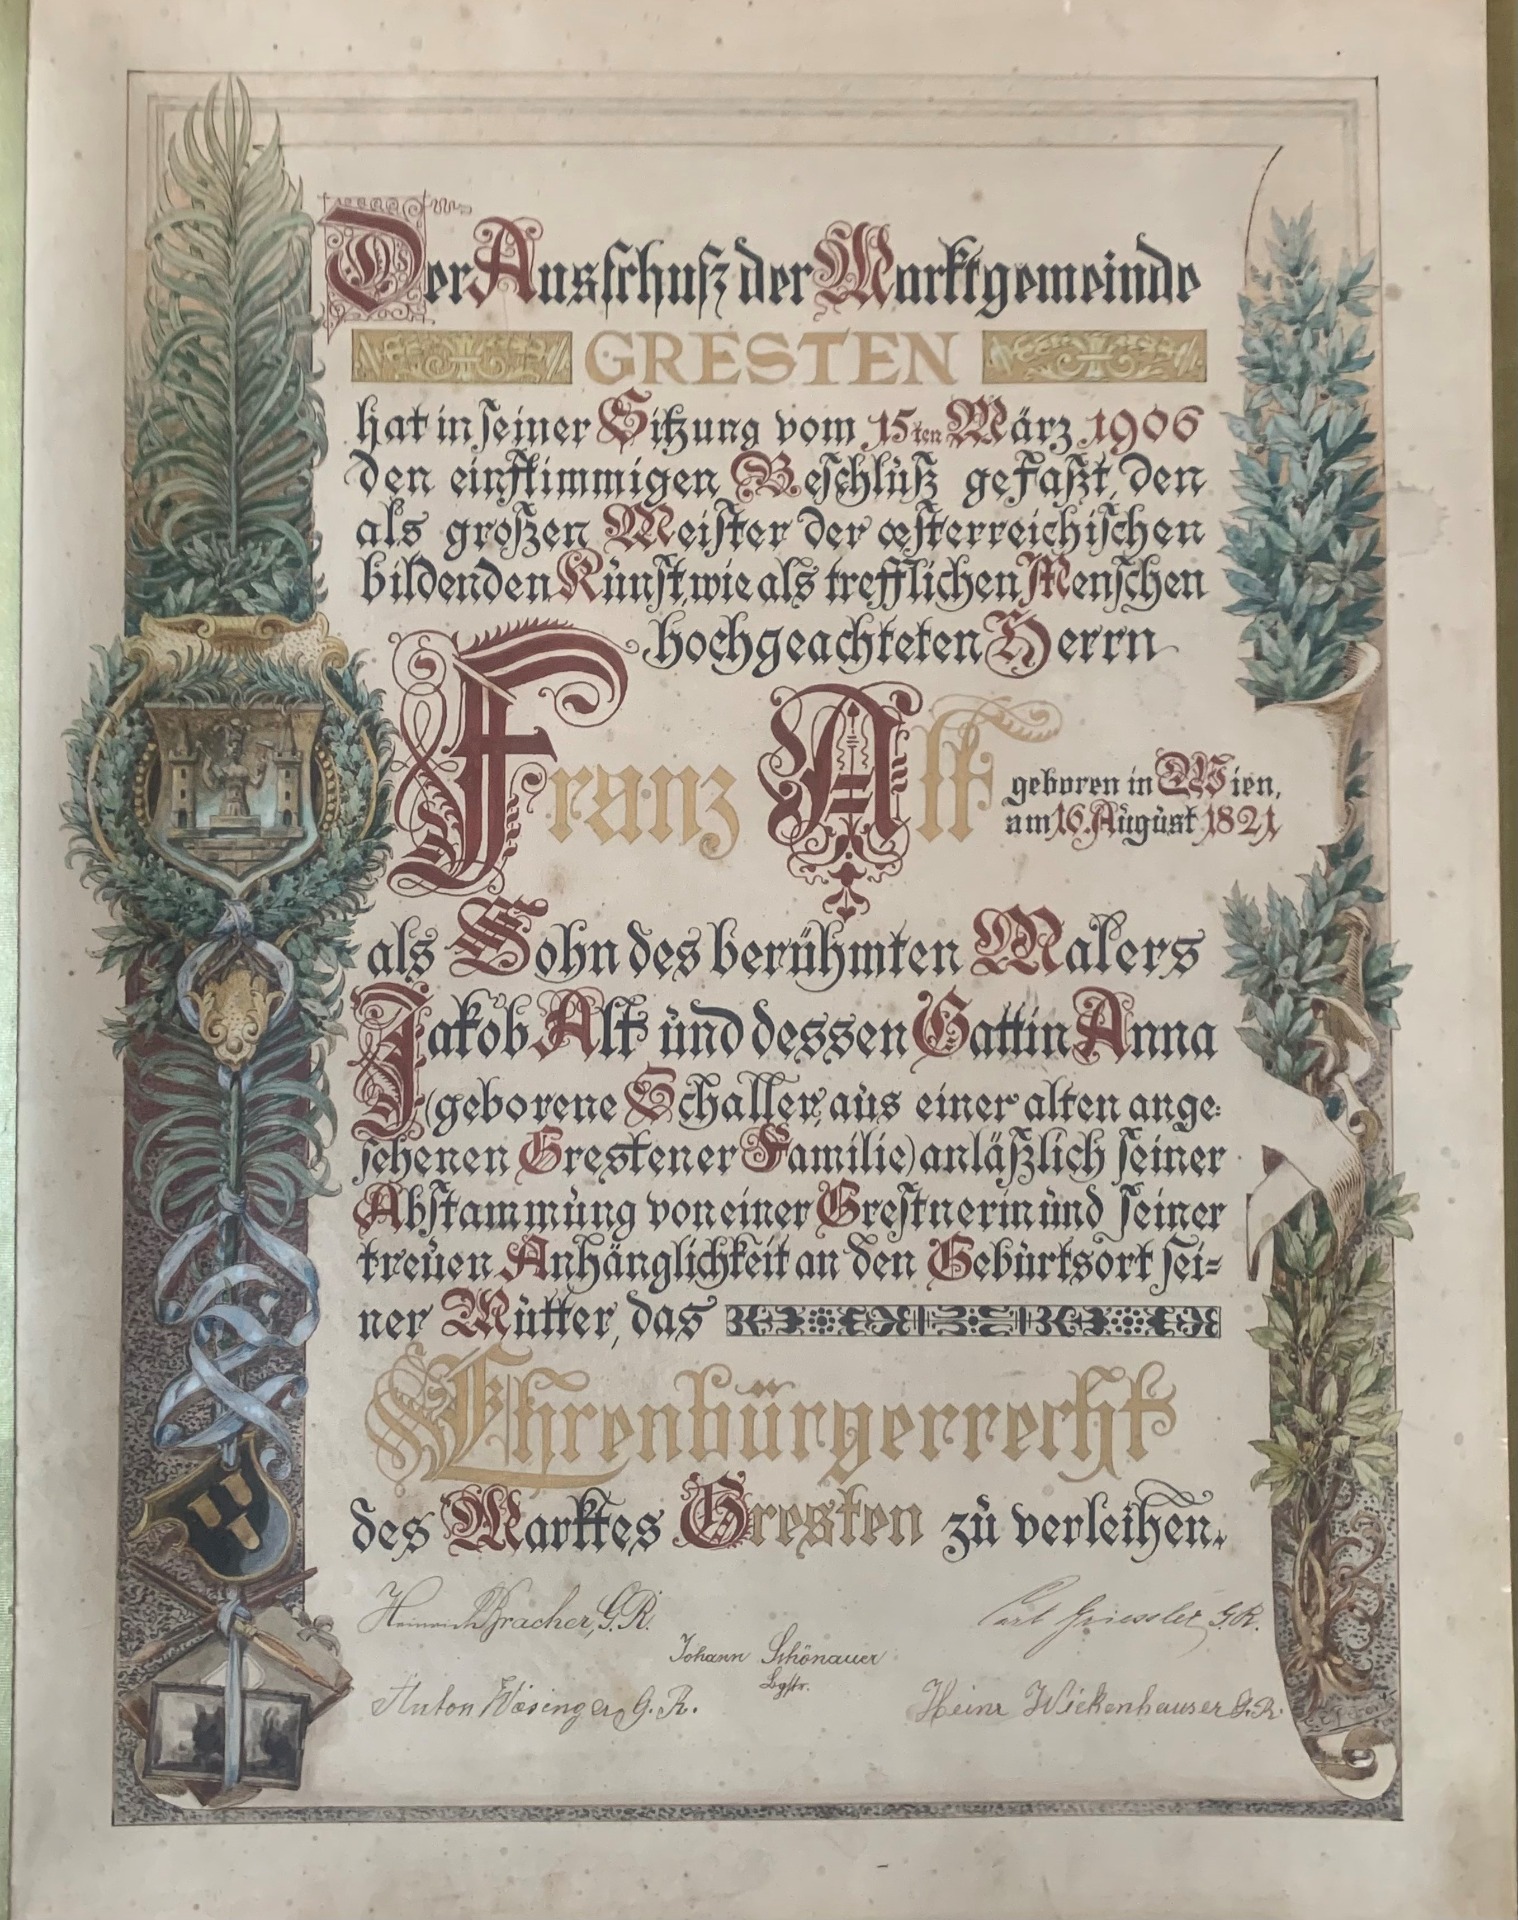 Der Ausschuß der Marktgemeinde
GRESTEN
hat in seiner Sitzung vom 15ten März 1906
den einstimmigen Beschluß gefaßt, den
als großen Meister der œsterreichischen
bildenden Kunst, wie als trefflichen Menschen
hochgeachteten Herrn
Franz Alt geboren in Wien,
am 16. August 1821
als Sohn des berühmten Malers
Jakob Alt und dessen Gattin Anna
(geborene Schaller, aus einer alten ange:
sehenen Grestener Familie) anläßlich seiner
Abstammung von einer Grestnerin und seiner
treuen Anhänglichkeit an den Geburtsort sei=
ner Mutter, das
Ehrenbürgerrecht
des Marktes Gresten zu verleihen.
Heinrich Bracher, G.R. Carl Griessler G.R.
Johann Schönauer
Bgstr.
Anton Wösinger, G.R. Heinr Wickenhauser G.R.